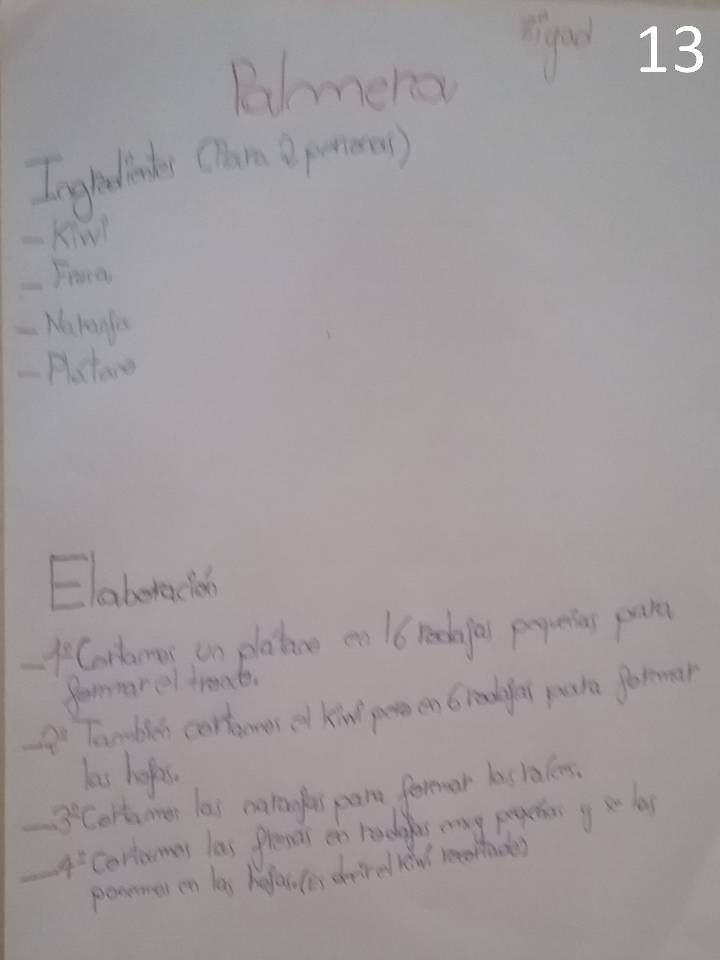 Ziyad 13
Palmera
Ingredientes (Para 2 personas)
- Kiwi
- Fresa
- Naranja
- Plátano
Elaboración
- 1º Cortamos un plátano en 16 rodajas pequeñas para
formar el tronco.
- 2º También cortamos el kiwi pero en 6 rodajas para formar
las hojas.
- 3º Cortamos las naranjas para formar las raíces.
- 4º Cortamos las fresas en rodajas muy pequeñas y se las
ponemos en las hojas. (Es decir el kiwi recortado)